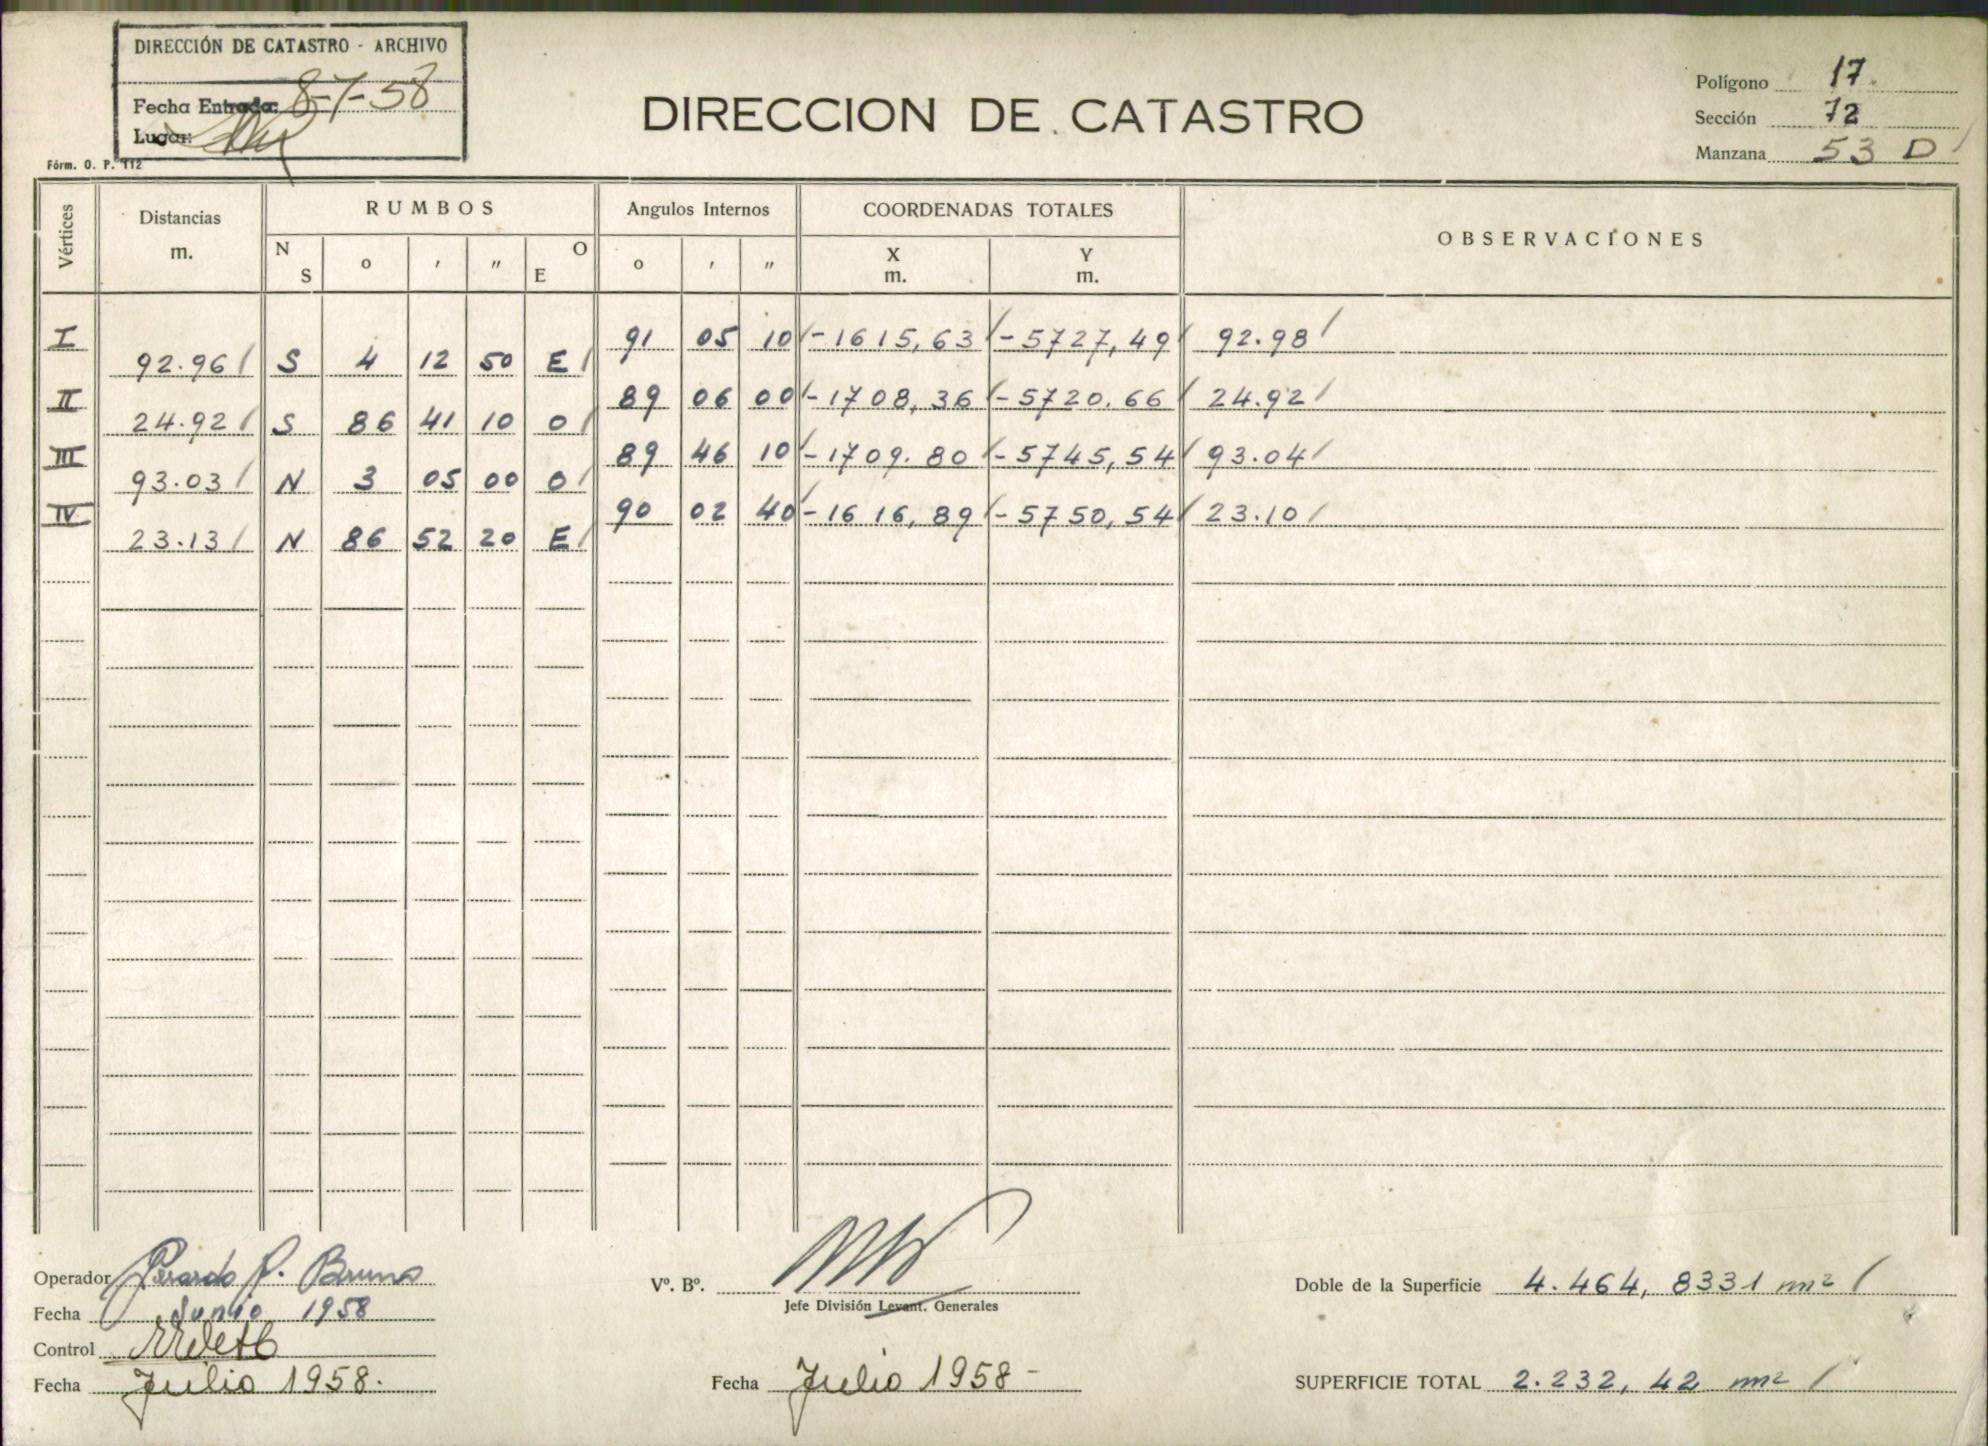 DIRECCIÓN DE CATASTRO - ARCHIVO
Fecha Entrada: 8-7-58
Lugar:
Fórm. O. P. 112
DIRECCION DE CATASTRO
Polígono 17
Sección 72
Manzana 53 D
Vértices Distancias m. RUMBOS Angulos Internos COORDENADAS TOTALES OBSERVACIONES
N S o ' " O E o ' " X m. Y m.
I 91 05 10 -1615,63 -5727,49 92.98
92.96 S 4 12 50 E
II 89 06 00 -1708,36 -5720.66 24.92
24.92 S 86 41 10 O
III 89 46 10 -1709.80 -5745,54 93.04
93.03 N 3 05 00 O
IV 90 02 40 -1616,89 -5750,54 23.10
23.13 N 86 52 20 E
Operador Gerardo P. Bruno
Fecha Junio 1958
Control
Fecha Julio 1958.
Vº. Bº.
Jefe División Levant. Generales
Fecha Julio 1958 -
Doble de la Superficie 4.464,8331 m²
SUPERFICIE TOTAL 2.232,42 m²